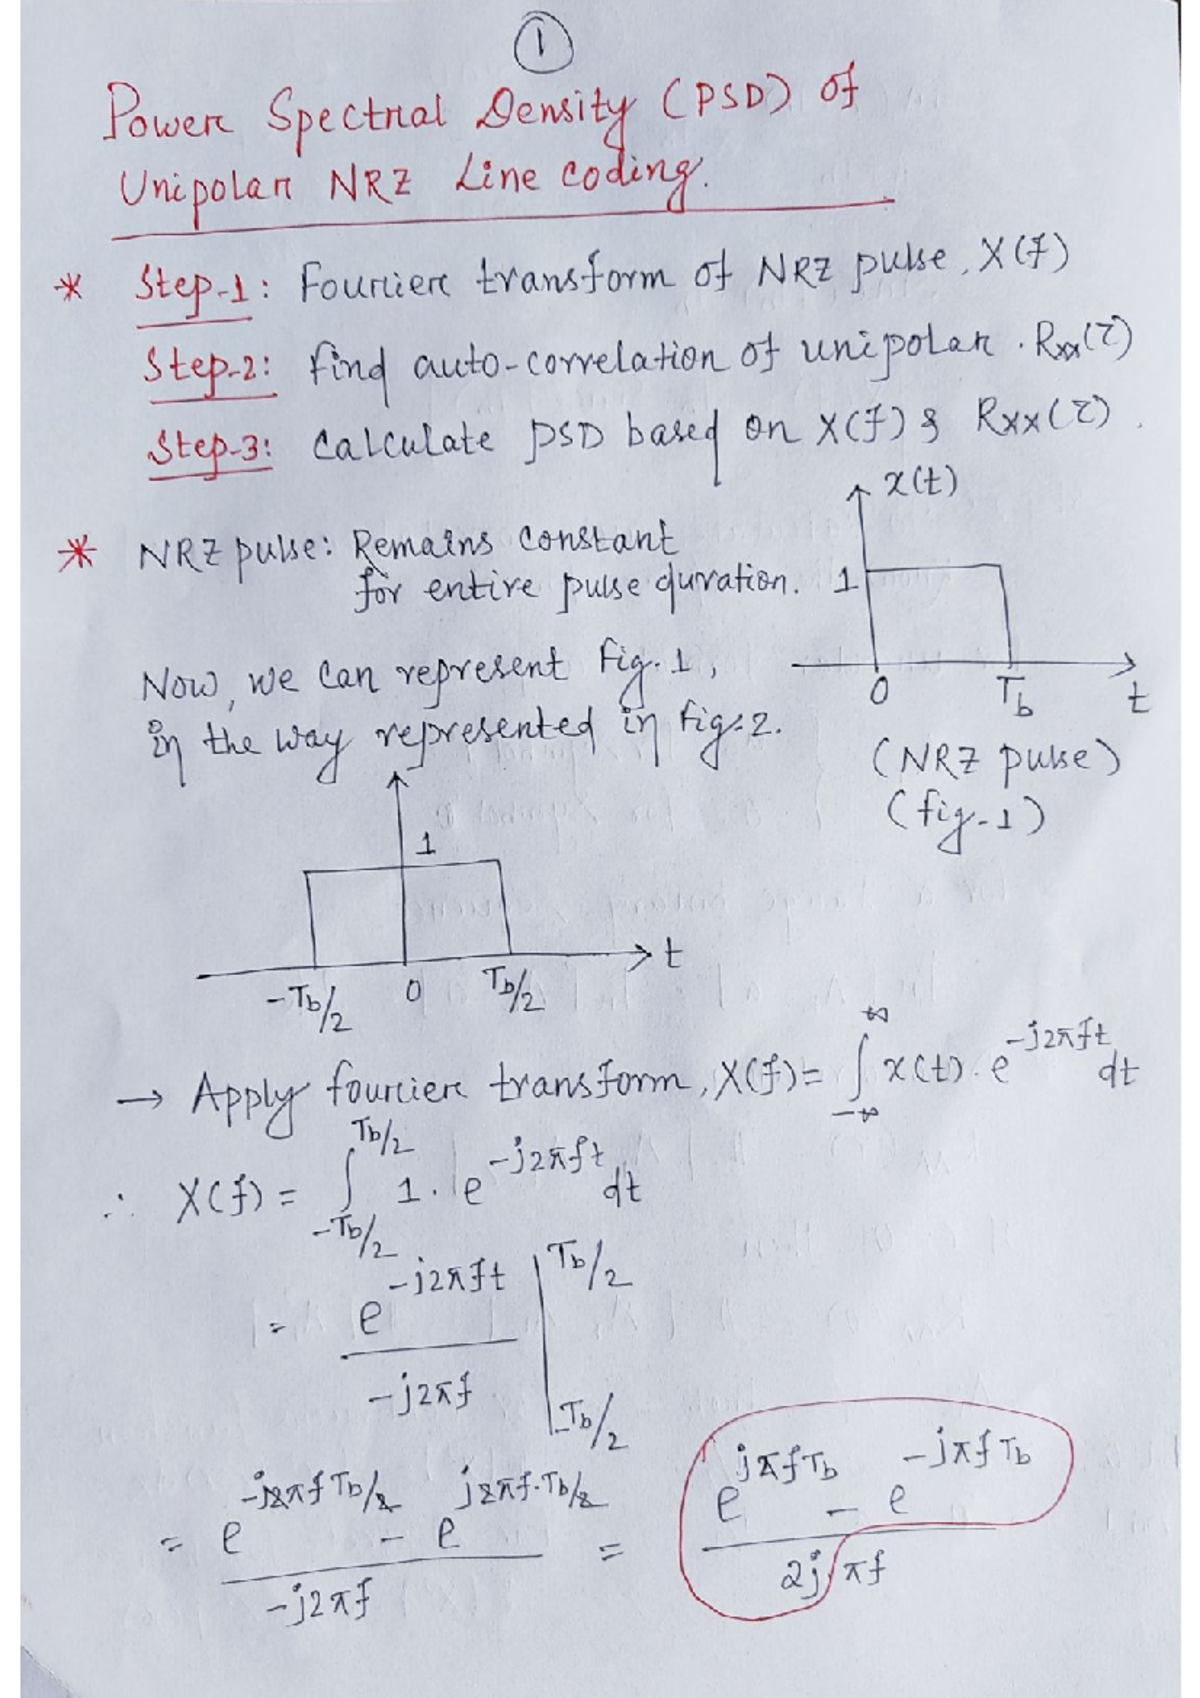 1
Power Spectral Density (PSD) of
Unipolar NRZ Line coding.
* Step-1: Fourier transform of NRZ pulse, X(f)
Step-2: Find auto-correlation of unipolar. Rxx(τ)
Step-3: Calculate PSD based on X(f) & Rxx(τ).
x(t)
* NRZ pulse: Remains constant
for entire pulse duration.
1
0 Tb t
Now, we can represent Fig. 1,
in the way represented in Fig-2.
(NRZ pulse)
(fig-1)
1
-Tb/2 0 Tb/2 t
→ Apply fourier transform, X(f) = ∫_{-∞}^{∞} x(t). e^{-j2πft} dt
∴ X(f) = ∫_{-Tb/2}^{Tb/2} 1. e^{-j2πft} dt
= e^{-j2πft} / -j2πf |_{-Tb/2}^{Tb/2}
= (e^{-j2πfTb/2} - e^{j2πf.Tb/2}) / -j2πf = (e^{jπfTb} - e^{-jπfTb}) / 2j πf